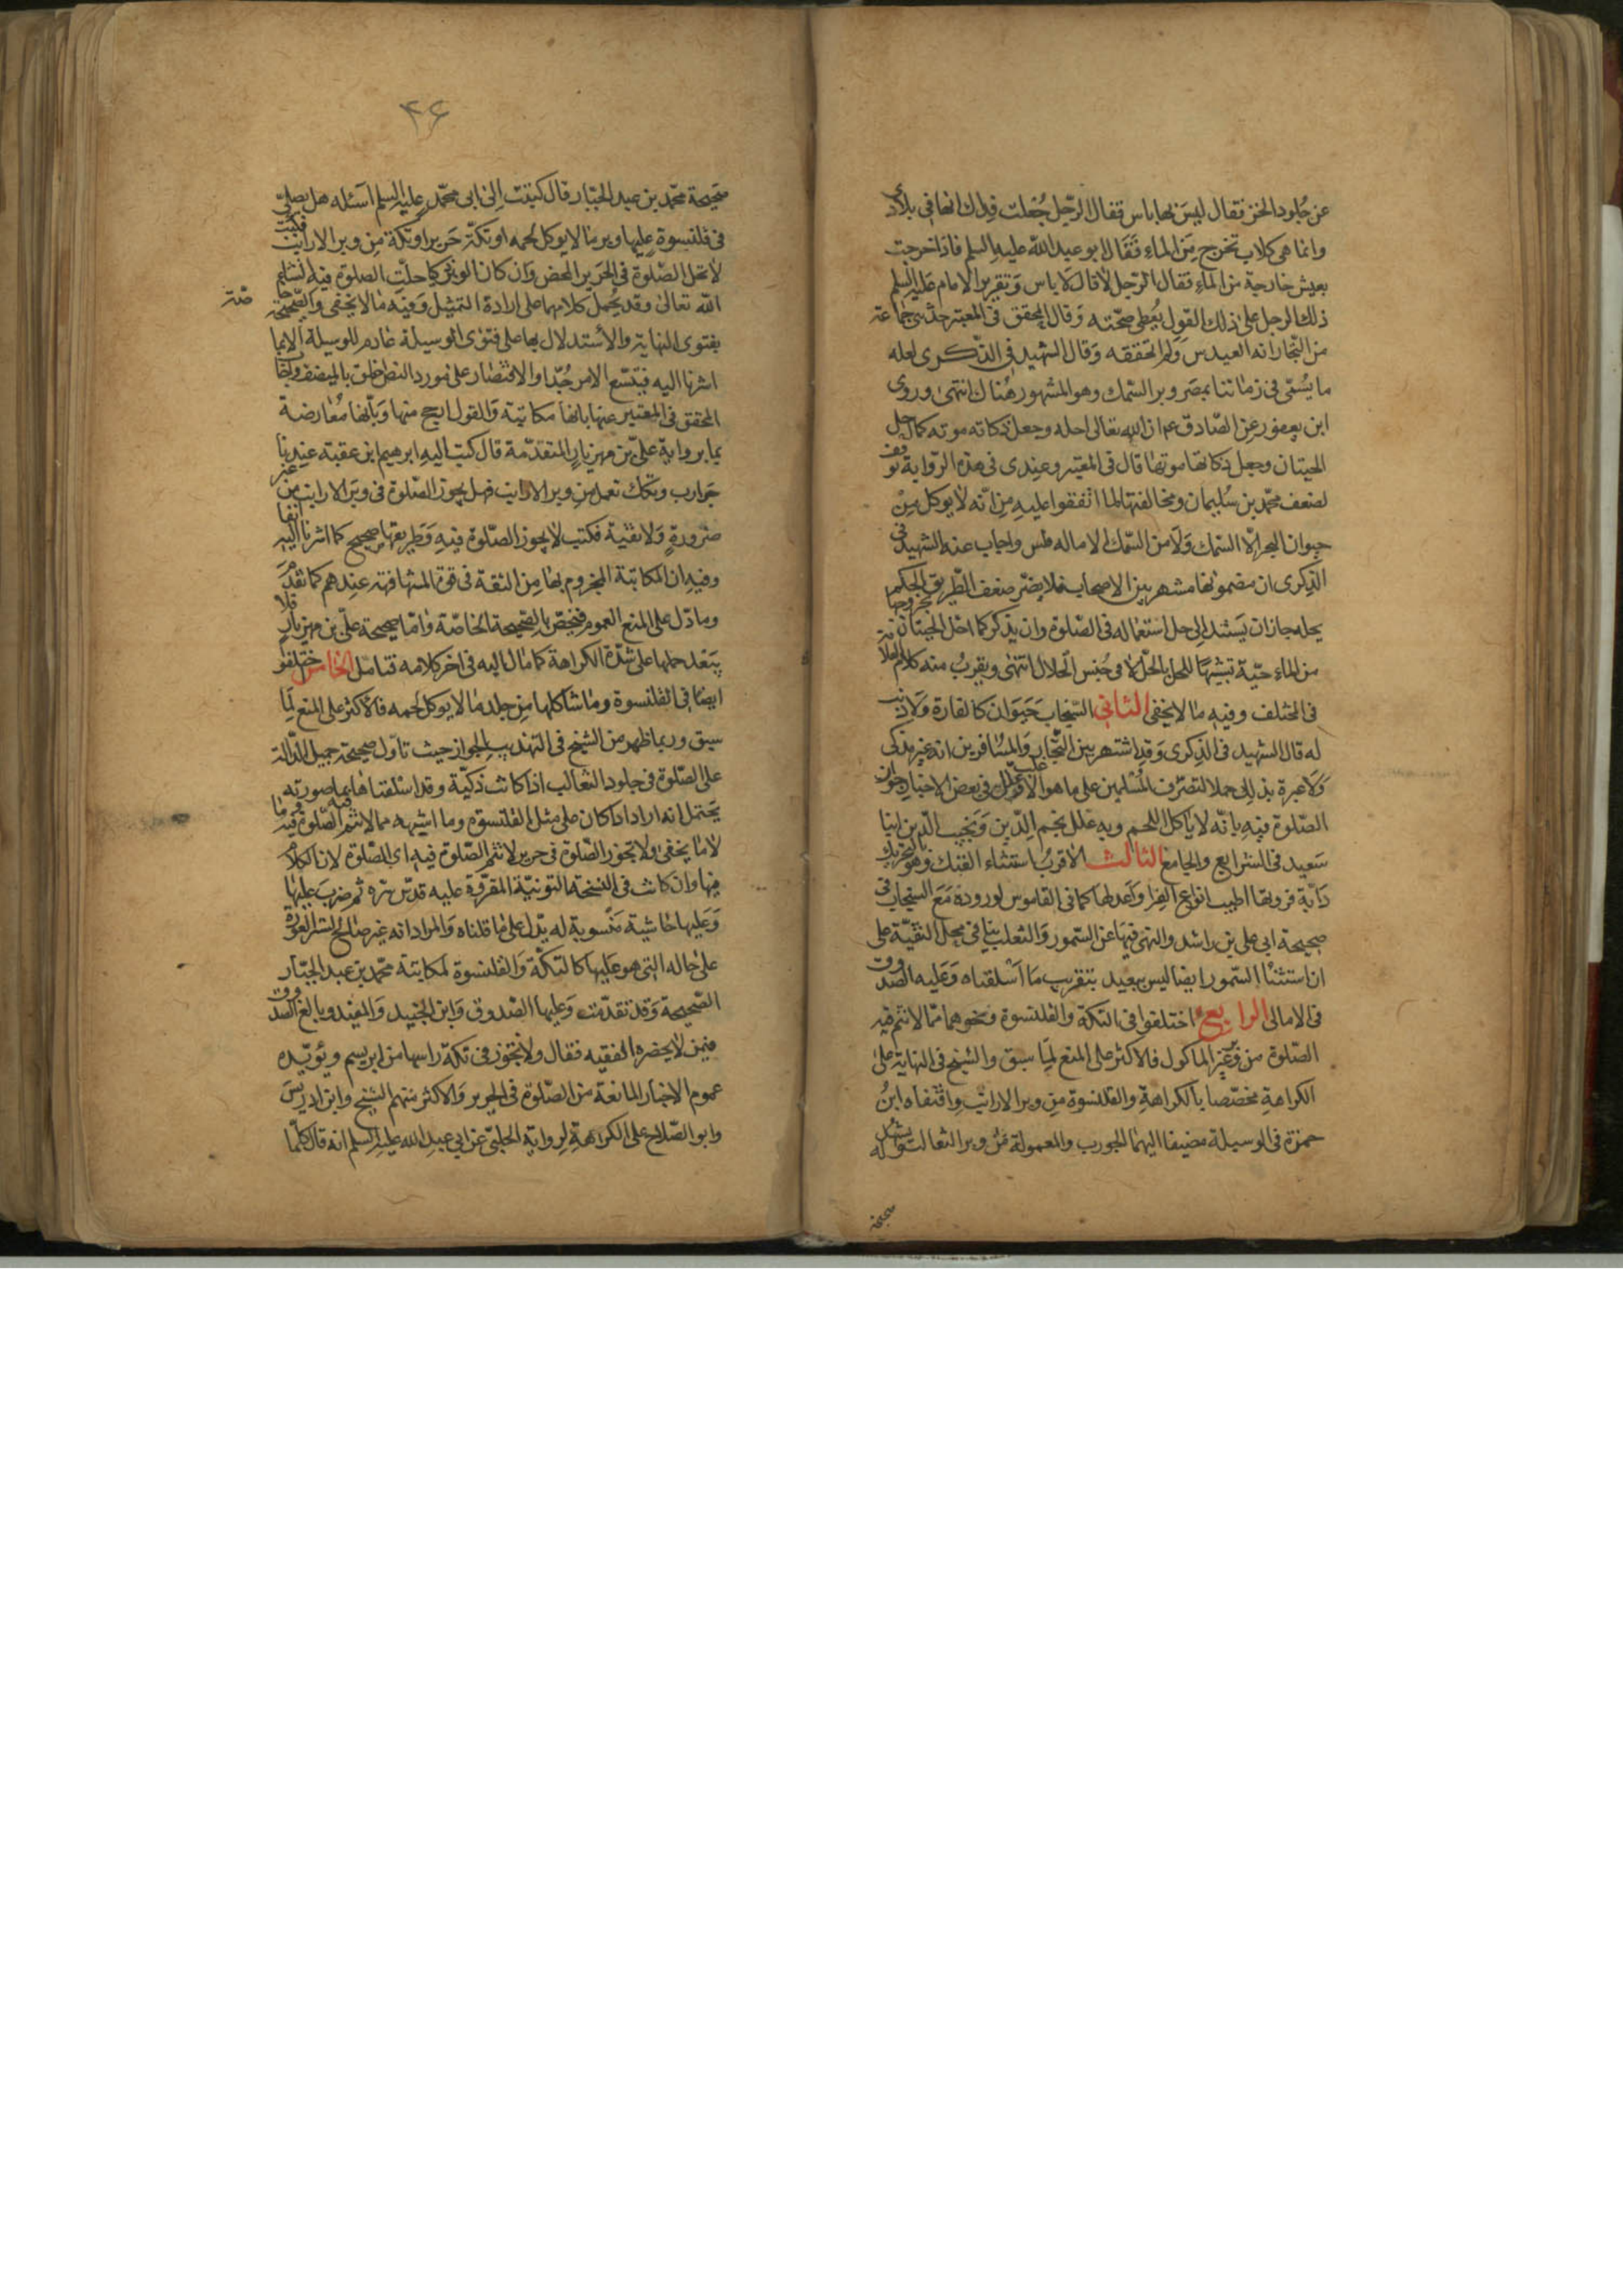 عن جلود الخز فقال ليس بها باس فقال الرجل جعلت فداك انها في بلادي
وانما هي كلاب تخرج من الماء فقال ابو عبد الله عليه السلم فاذا خرجت
تعيش خارجة من الماء فقال الرجل لا قال لا باس وتقرير الامام عليه السلم
ذلك الرجل على ذلك القول يعطي صحته وقال المحقق في المعتبر حدثني جماعة
من التجار انه القندس ولم اتحققه وقال الشهيد في الذكرى لعله
ما يسمى في زماننا بمصر وبر السمك وهو المشهور هناك انتهى وروى
ابن يعفور عن الصادق ع ان الله تعالى احله وجعل ذكاته موته كما حل
الحيتان وجعل ذكاتها موتها قال في المعتبر وعندي في هذه الرواية توقف
لضعف محمد بن سليمان ومخالفتها لما اتفقوا عليه من انه لا يوكل من
حيوان البحر الا السمك ولا من السمك الا ماله فلس واجاب عنه الشهيد في
الذكرى ان مضمونها مشهر بين الاصحاب فلا يضر ضعف الطريق والحكم
بحله جاز ان يستند الى حل استعماله في الصلوة وان يذكر كما احل الحيتان بخروجها
من الماء حية تشبيها للحل بالحل لا في جنس الحلال انتهى ويقرب منه كلام العلامة
في المختلف وفيه ما لا يخفى الثاني السنجاب حيوان كالفارة ولا ذنب
له قال الشهيد في الذكرى وقد اشتهر بين التجار والمسافرين انه غير مذكى
ولا عبرة بذلك حملا لتصرف المسلمين على ما هو الاغلب وعلل في بعض الاخبار جواز
الصلوة فيه بانه لا ياكل اللحم وبه علل نجم الدين ونجيب الدين ابنا
سعيد في الشرايع والجامع الثالث الاقرب استثناء الفنك وهو بالتحريك
دابة فروتها اطيب انواع الفرا واعدلها كما في القاموس لوروده مع السنجاب في
صحيحة ابي علي بن راشد والنهي فيها عن السمور والثعلب ينافي محل التقية على
ان استثناء السمور ايضا ليس ببعيد بتقريب ما اسلفناه وعليه الصدوق
في الامالي الرابع اختلفوا في التكة والقلنسوة ونحوهما مما لا تتم فيه
الصلوة من وبر غير الماكول فالاكثر على المنع لما سبق والشيخ في النهاية على
الكراهة مخصصا بالكراهة والقلنسوة من وبر الارانب واقتفاه ابن
حمزة في الوسيلة مضيفا اليهما الجورب والمعمولة من وبر الثعالب ويشهد له
صحيحة
۴۶
صحيحة محمد بن عبد الجبار قال كتبت الى ابي محمد عليه السلم اسئله هل يصلى
في قلنسوة عليها وبر ما لا يوكل لحمه او تكة حرير او تكة من وبر الارانب فكتب
لا تحل الصلوة في الحرير المحض وان كان الوبر ذكيا حلت الصلوة فيه انشاء
الله تعالى وقد يحمل كلامهما على ارادة التمثيل وفيه ما لا يخفى والصحيحة خاصة
بفتوى النهاية والاستدلال بها على فتوى الوسيلة عادم للوسيلة الا بما
اشرنا اليه فيتسع الامر جدا والاقتصار على مورد النص خليق بالمنصف واجاب
المحقق في المعتبر عنها بانها مكاتبة والقول ارجح منها وبانها معارضة
بما برواية علي بن مهزيار المتقدمة قال كتب اليه ابرهيم ابن عقبة عندنا
جوارب وتكك تعمل من وبر الارانب فهل يجوز الصلوة في وبر الارانب من غير
ضرورة ولا تقية فكتب لا يجوز الصلوة فيه وطريقها صحيح كما اشرنا اليه انفا
وفيه ان المكاتبة المجزوم بها من الثقة في قوة المشافهة عندهم كما تقدم
وما دل على المنع العموم فيخص بالصحيحة الخاصة واما صحيحة علي بن مهزيار فلا
يبعد حملها على شدة الكراهة كما مال اليه في اخر كلامه فتامل الخامس اختلفوا
ايضا في القلنسوة وما شاكلها من جلد ما لا يوكل لحمه فالاكثر على المنع لما
سبق وربما ظهر من الشيخ في التهذيب الجواز حيث تاول صحيحة جميل الدالة
على الصلوة في جلود الثعالب اذا كانت ذكية وقد اسلفناها بما صورته
يحتمل انه اراد اذا كان على مثل القلنسوة وما اشبهه مما لا تتم الصلوة فيه وفيه ما
لا يخفى ولا تجوز الصلوة في حرير لا تتم الصلوة فيه اى الصلوة لان الكلام
فيها وان كانت في النسخة التونية المقروة عليه قدس سره ثم ضرب عليها
وعليها حاشية منسوبة له يدل على ما قلناه والمراد انه غير صالح لستر العورة
على حاله التي هو عليها كالتكة والقلنسوة لمكاتبة محمد بن عبد الجبار
الصحيحة وقد تقدمت وعليها الصدوق وابن الجنيد والمفيد وبالغ الصدوق
فيمن لا يحضره الفقيه فقال ولا يجوز في تكة راسها من ابريسم ويؤيده
عموم الاخبار المانعة من الصلوة في الحرير والاكثر منهم الشيخ وابن ادريس
وابو الصلاح على الكراهة لرواية الحلبي عن ابي عبد الله عليه السلم انه قال كلما